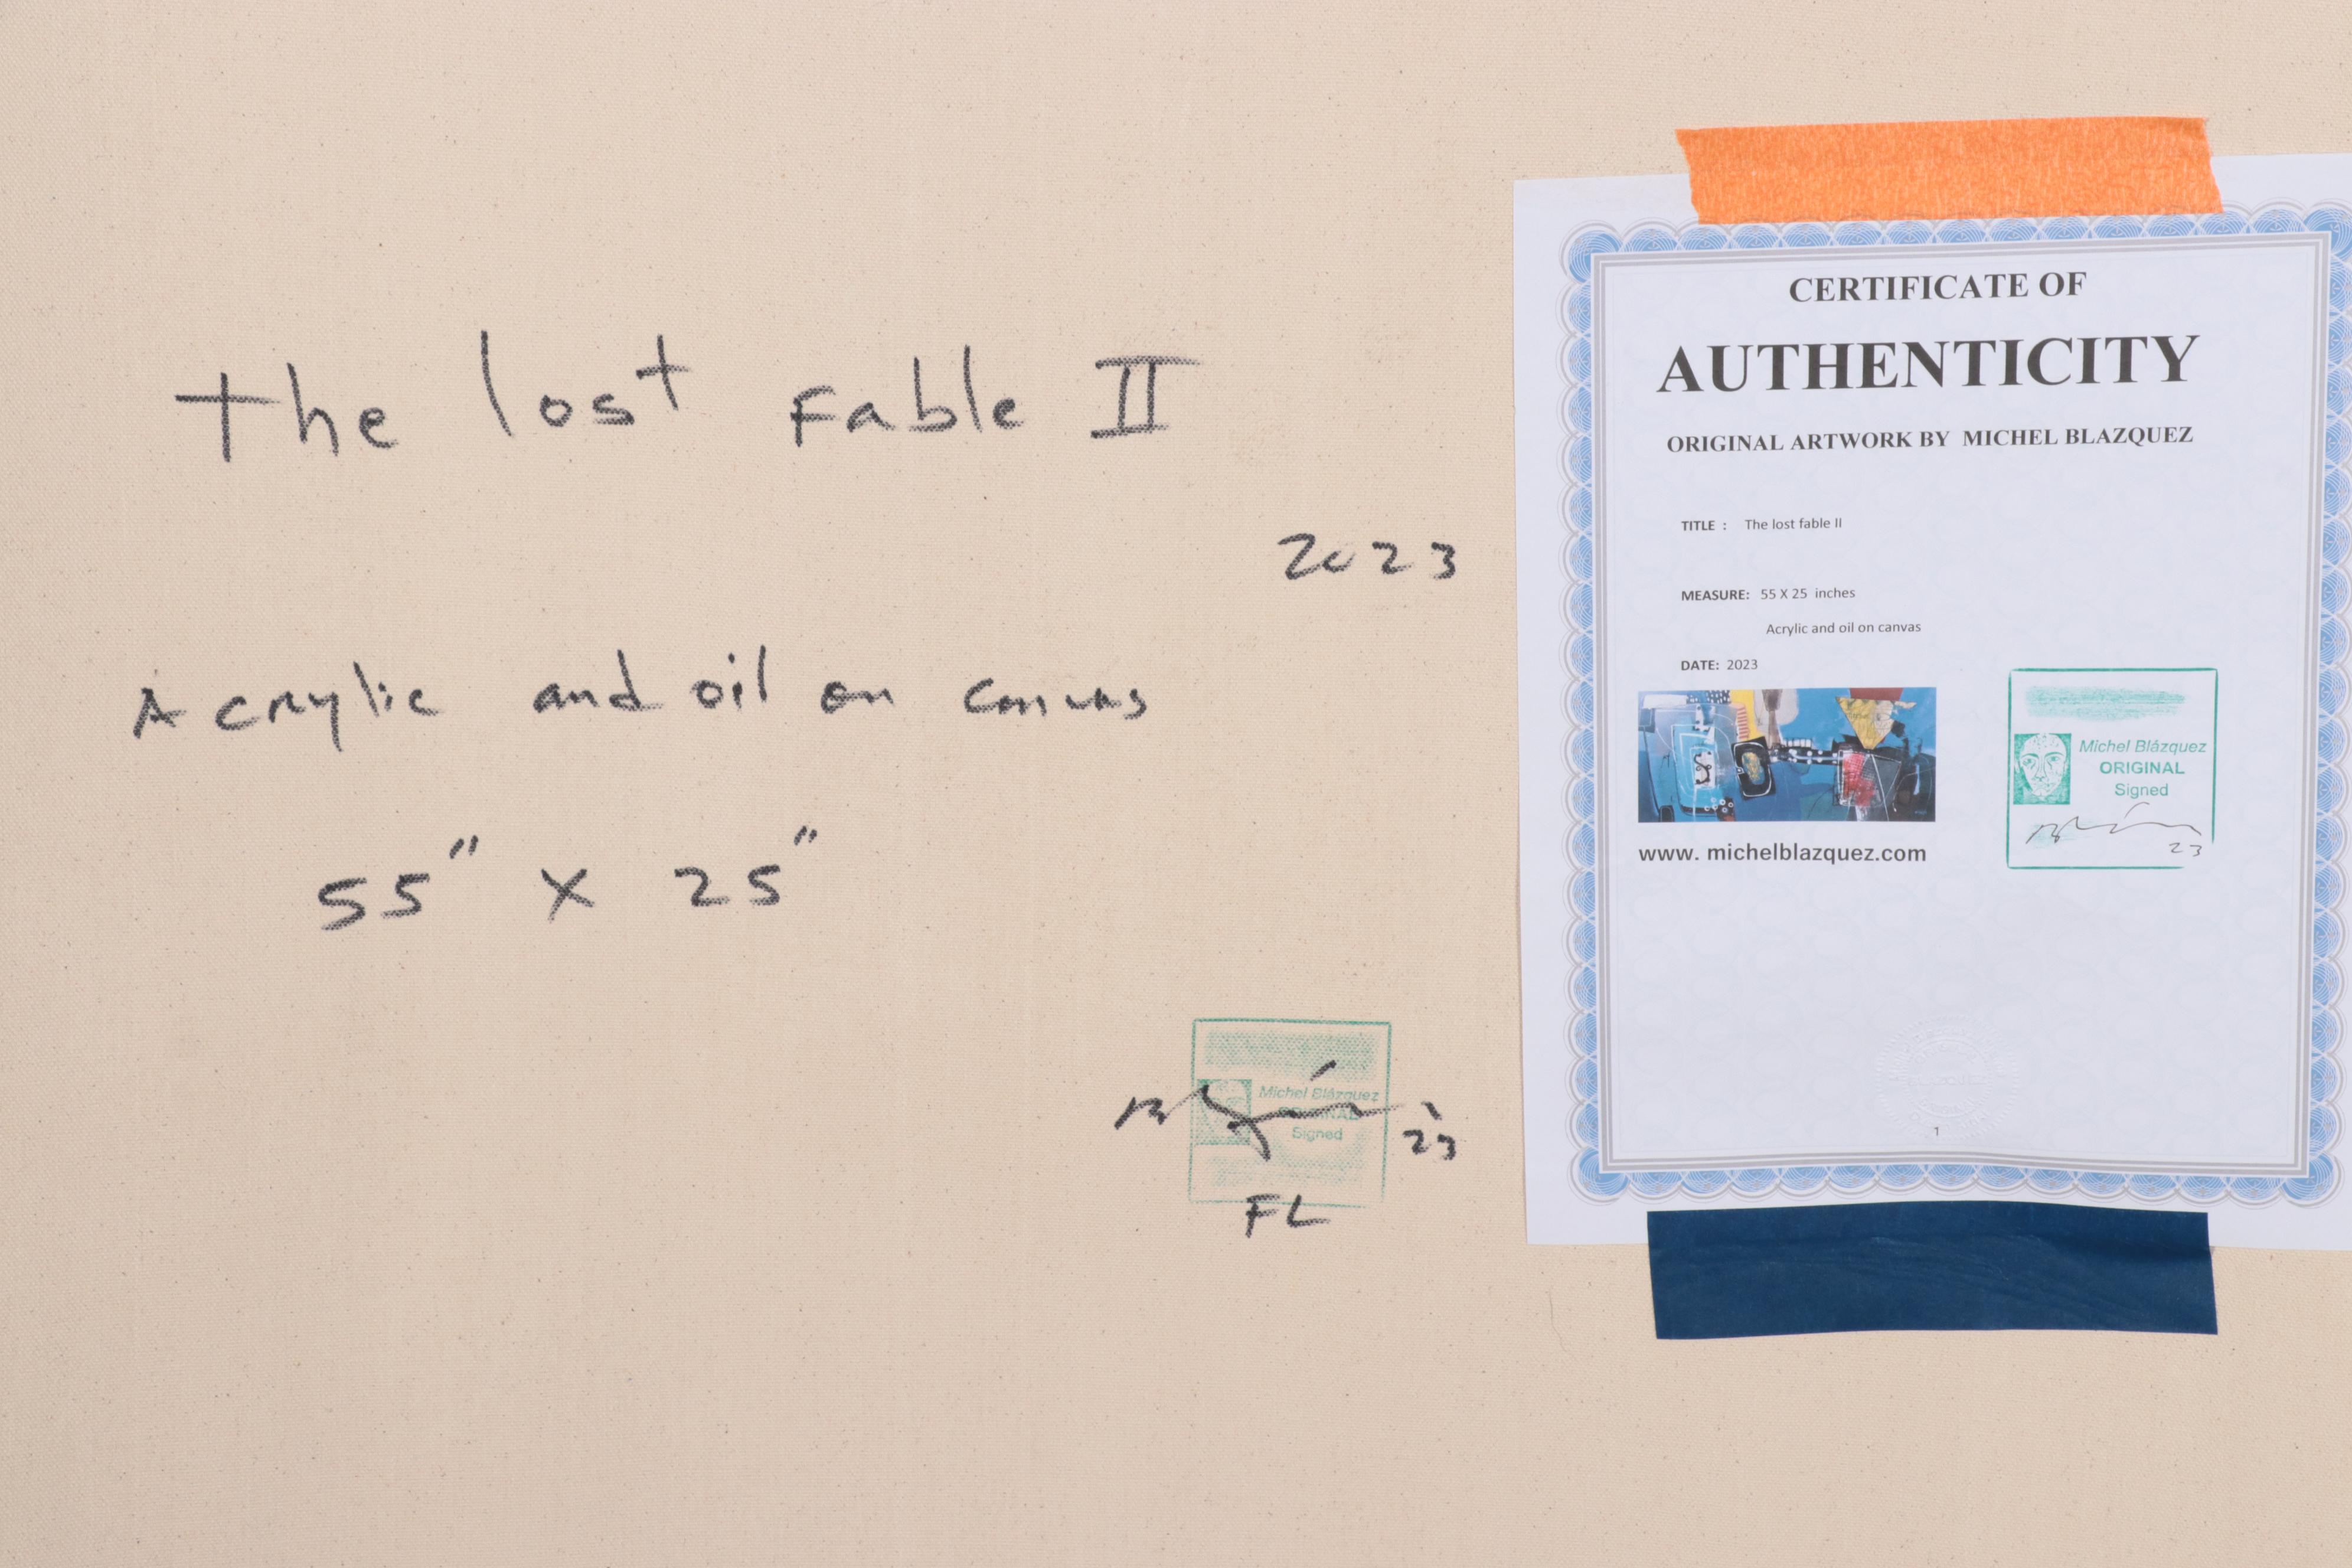 The lost Fable II
2023
Acrylic and oil on canvas
55" X 25"
Michel Blázquez
Signed
23
FL
CERTIFICATE OF
AUTHENTICITY
ORIGINAL ARTWORK BY MICHEL BLAZQUEZ
TITLE : The lost fable II
MEASURE: 55 X 25 inches
Acrylic and oil on canvas
DATE: 2023
Michel Blázquez
ORIGINAL
Signed
23
www. michelblazquez.com
1